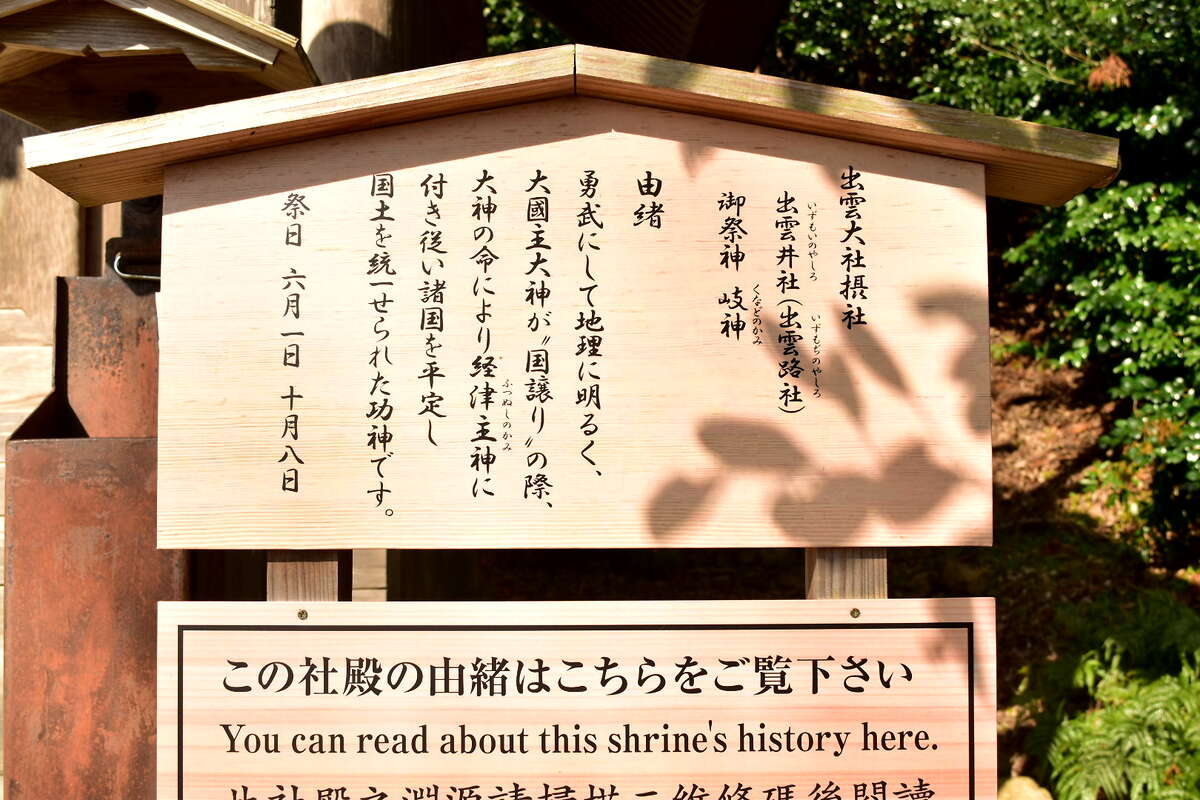 出雲大社摂社
出雲井社(出雲路社)
いずもいのやしろ
いずもぢのやしろ
御祭神 岐神
くなどのかみ
由緒
勇武にして地理に明るく、
大國主大神が〝国譲り〟の際、
大神の命により経津主神に
ふつぬしのかみ
付き従い諸国を平定し
国土を統一せられた功神です。
祭日 六月一日 十月八日
この社殿の由緒はこちらをご覧下さい
You can read about this shrine's history here.
此社殿之淵源請掃描二維條碼後閱讀